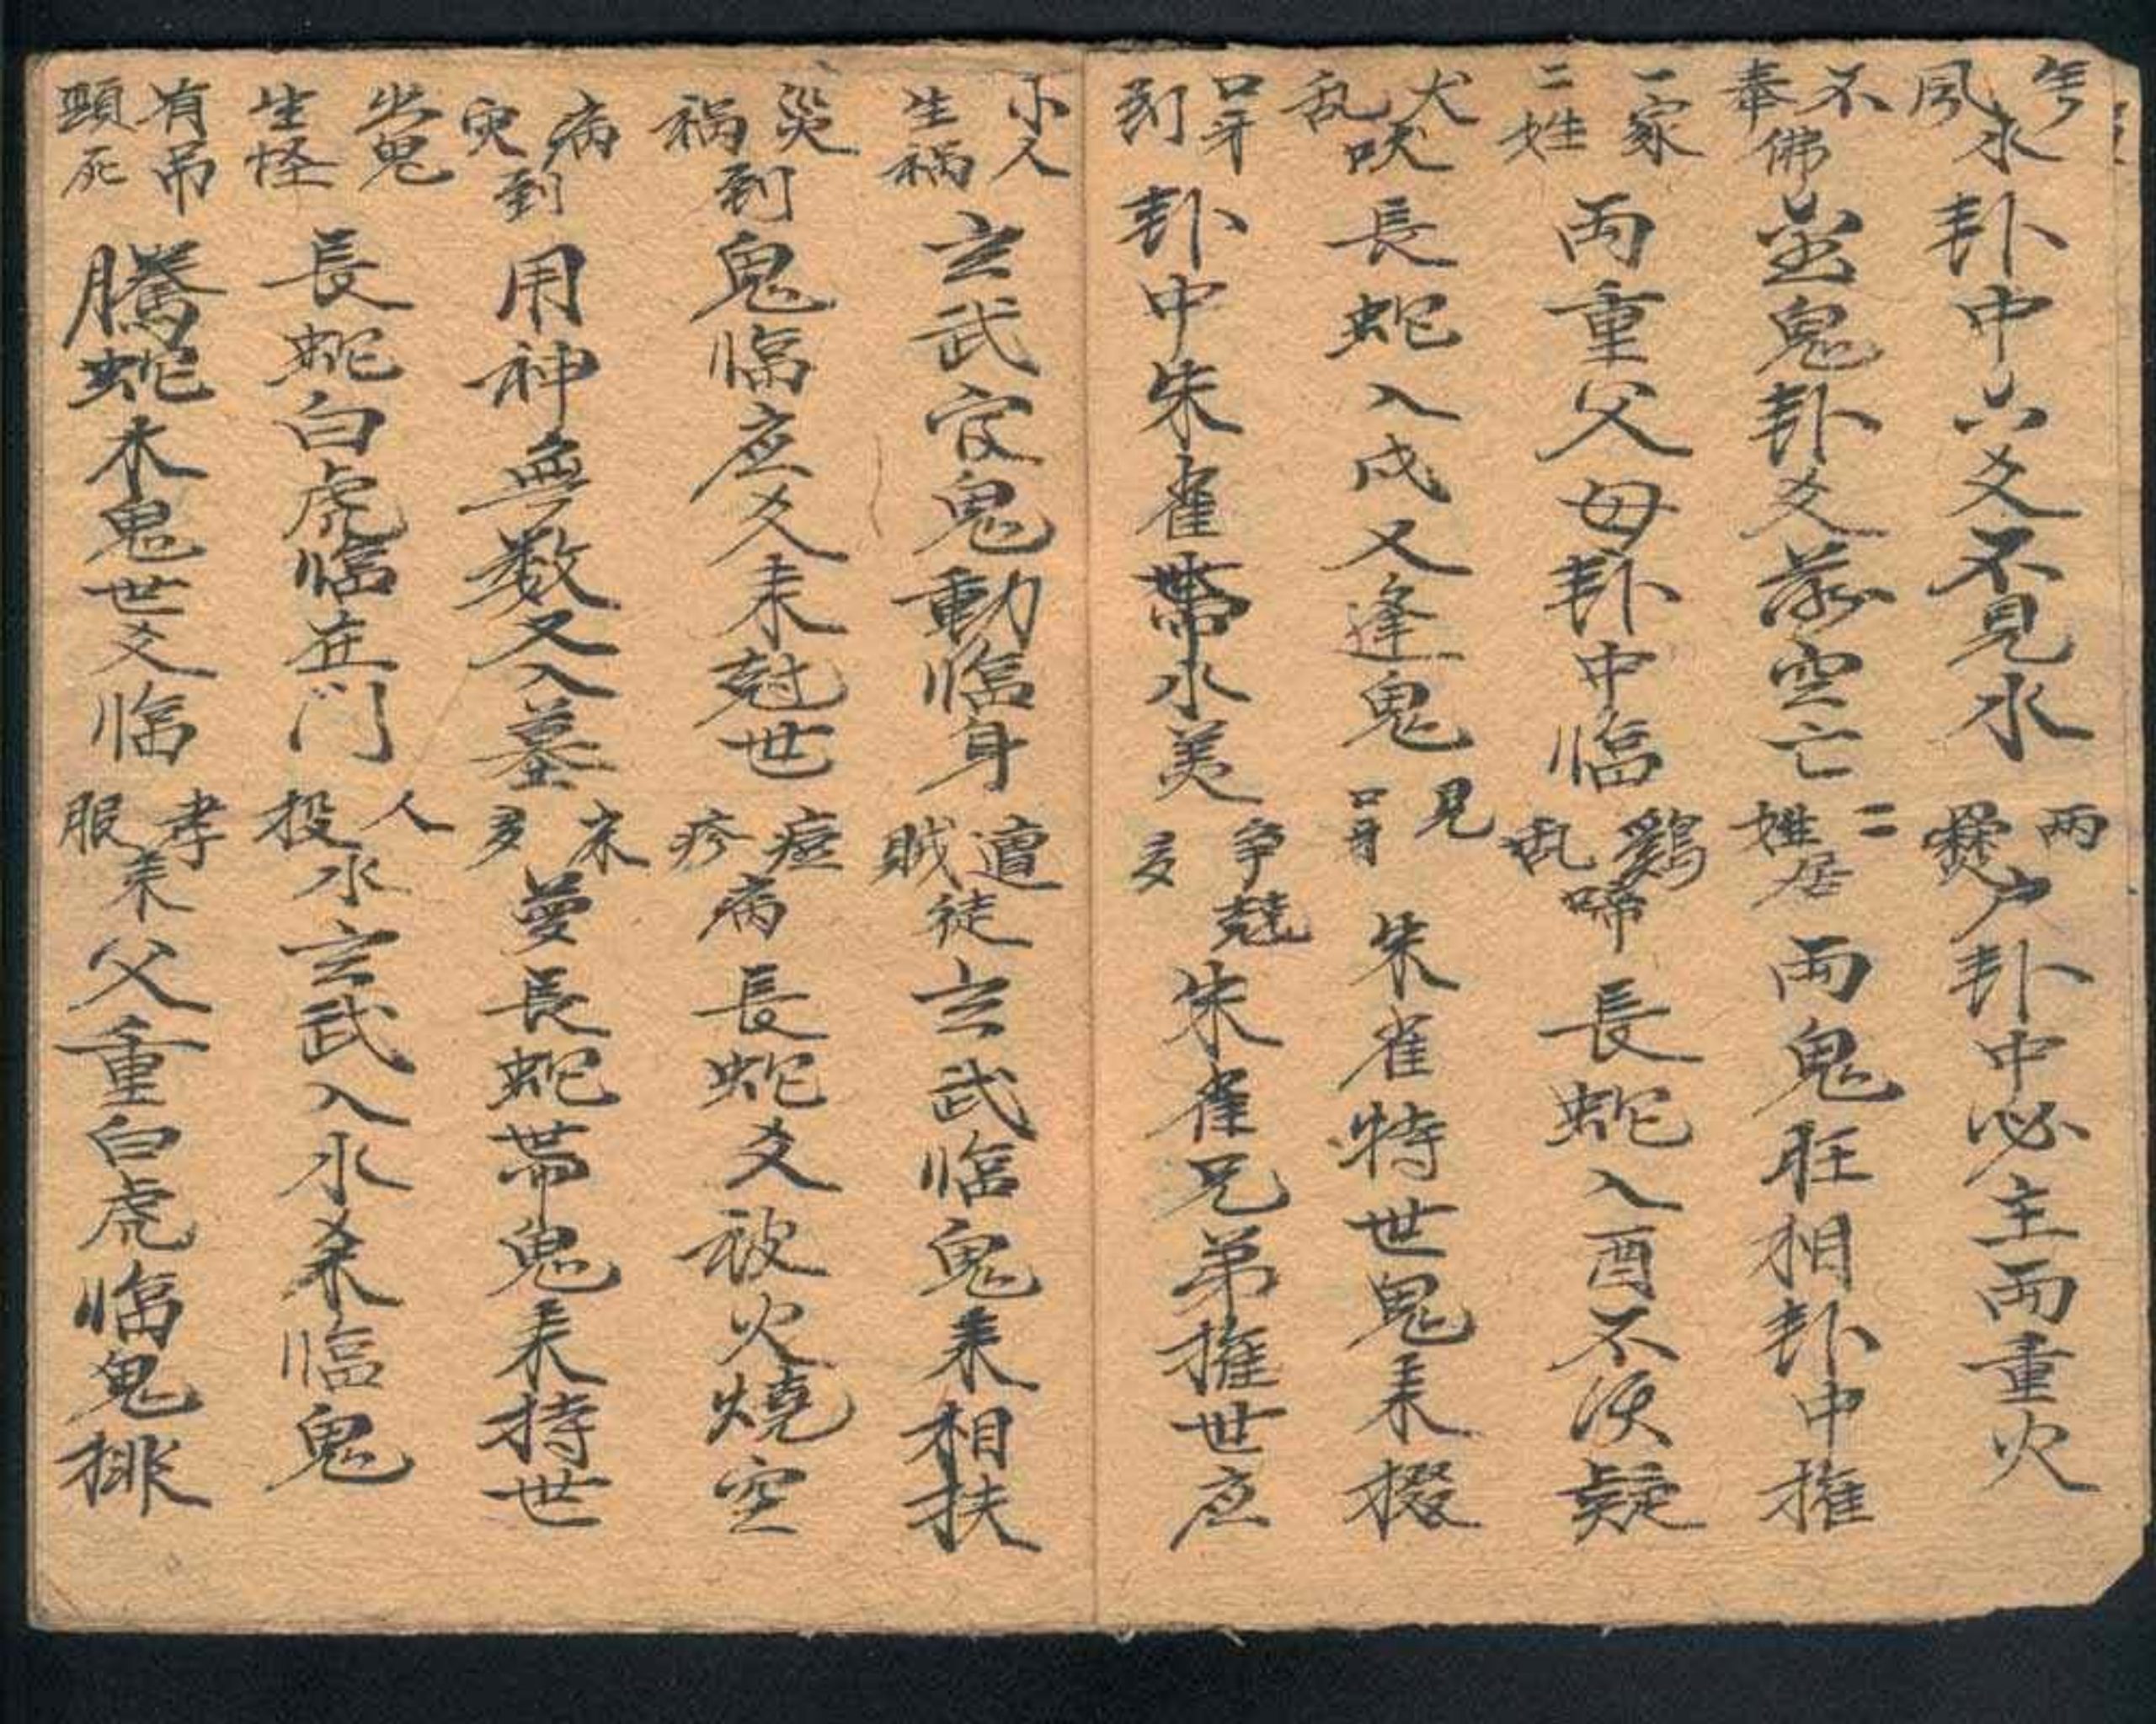 風水 卦中六爻不見水 兩爨户 卦中必主兩重火
不奉佛 金鬼卦爻落空亡 二姓居 兩鬼旺相卦中推
一家二姓 兩重父母卦中臨 鷄乱啼 長蛇入酉不須疑
犬乱吠 長蛇入戌又逢鬼 見口牙 朱雀特世鬼来掇
口牙到 卦中朱雀帶水美 多争兢 朱雀兄弟推世应
小人生禍 玄武官鬼動临身 遭賊徒 玄武临鬼来相扶
災禍到 鬼临应爻来尅世 痘疹病 長蛇爻被火燒空
病臾到 用神無数又入墓 多末夢 長蛇帶鬼来持世
出鬼生怪 長蛇白虎临在门 人投水 玄武入水来临鬼
有吊頸死 騰蛇木鬼世爻临 孝服来 父重白虎临鬼排